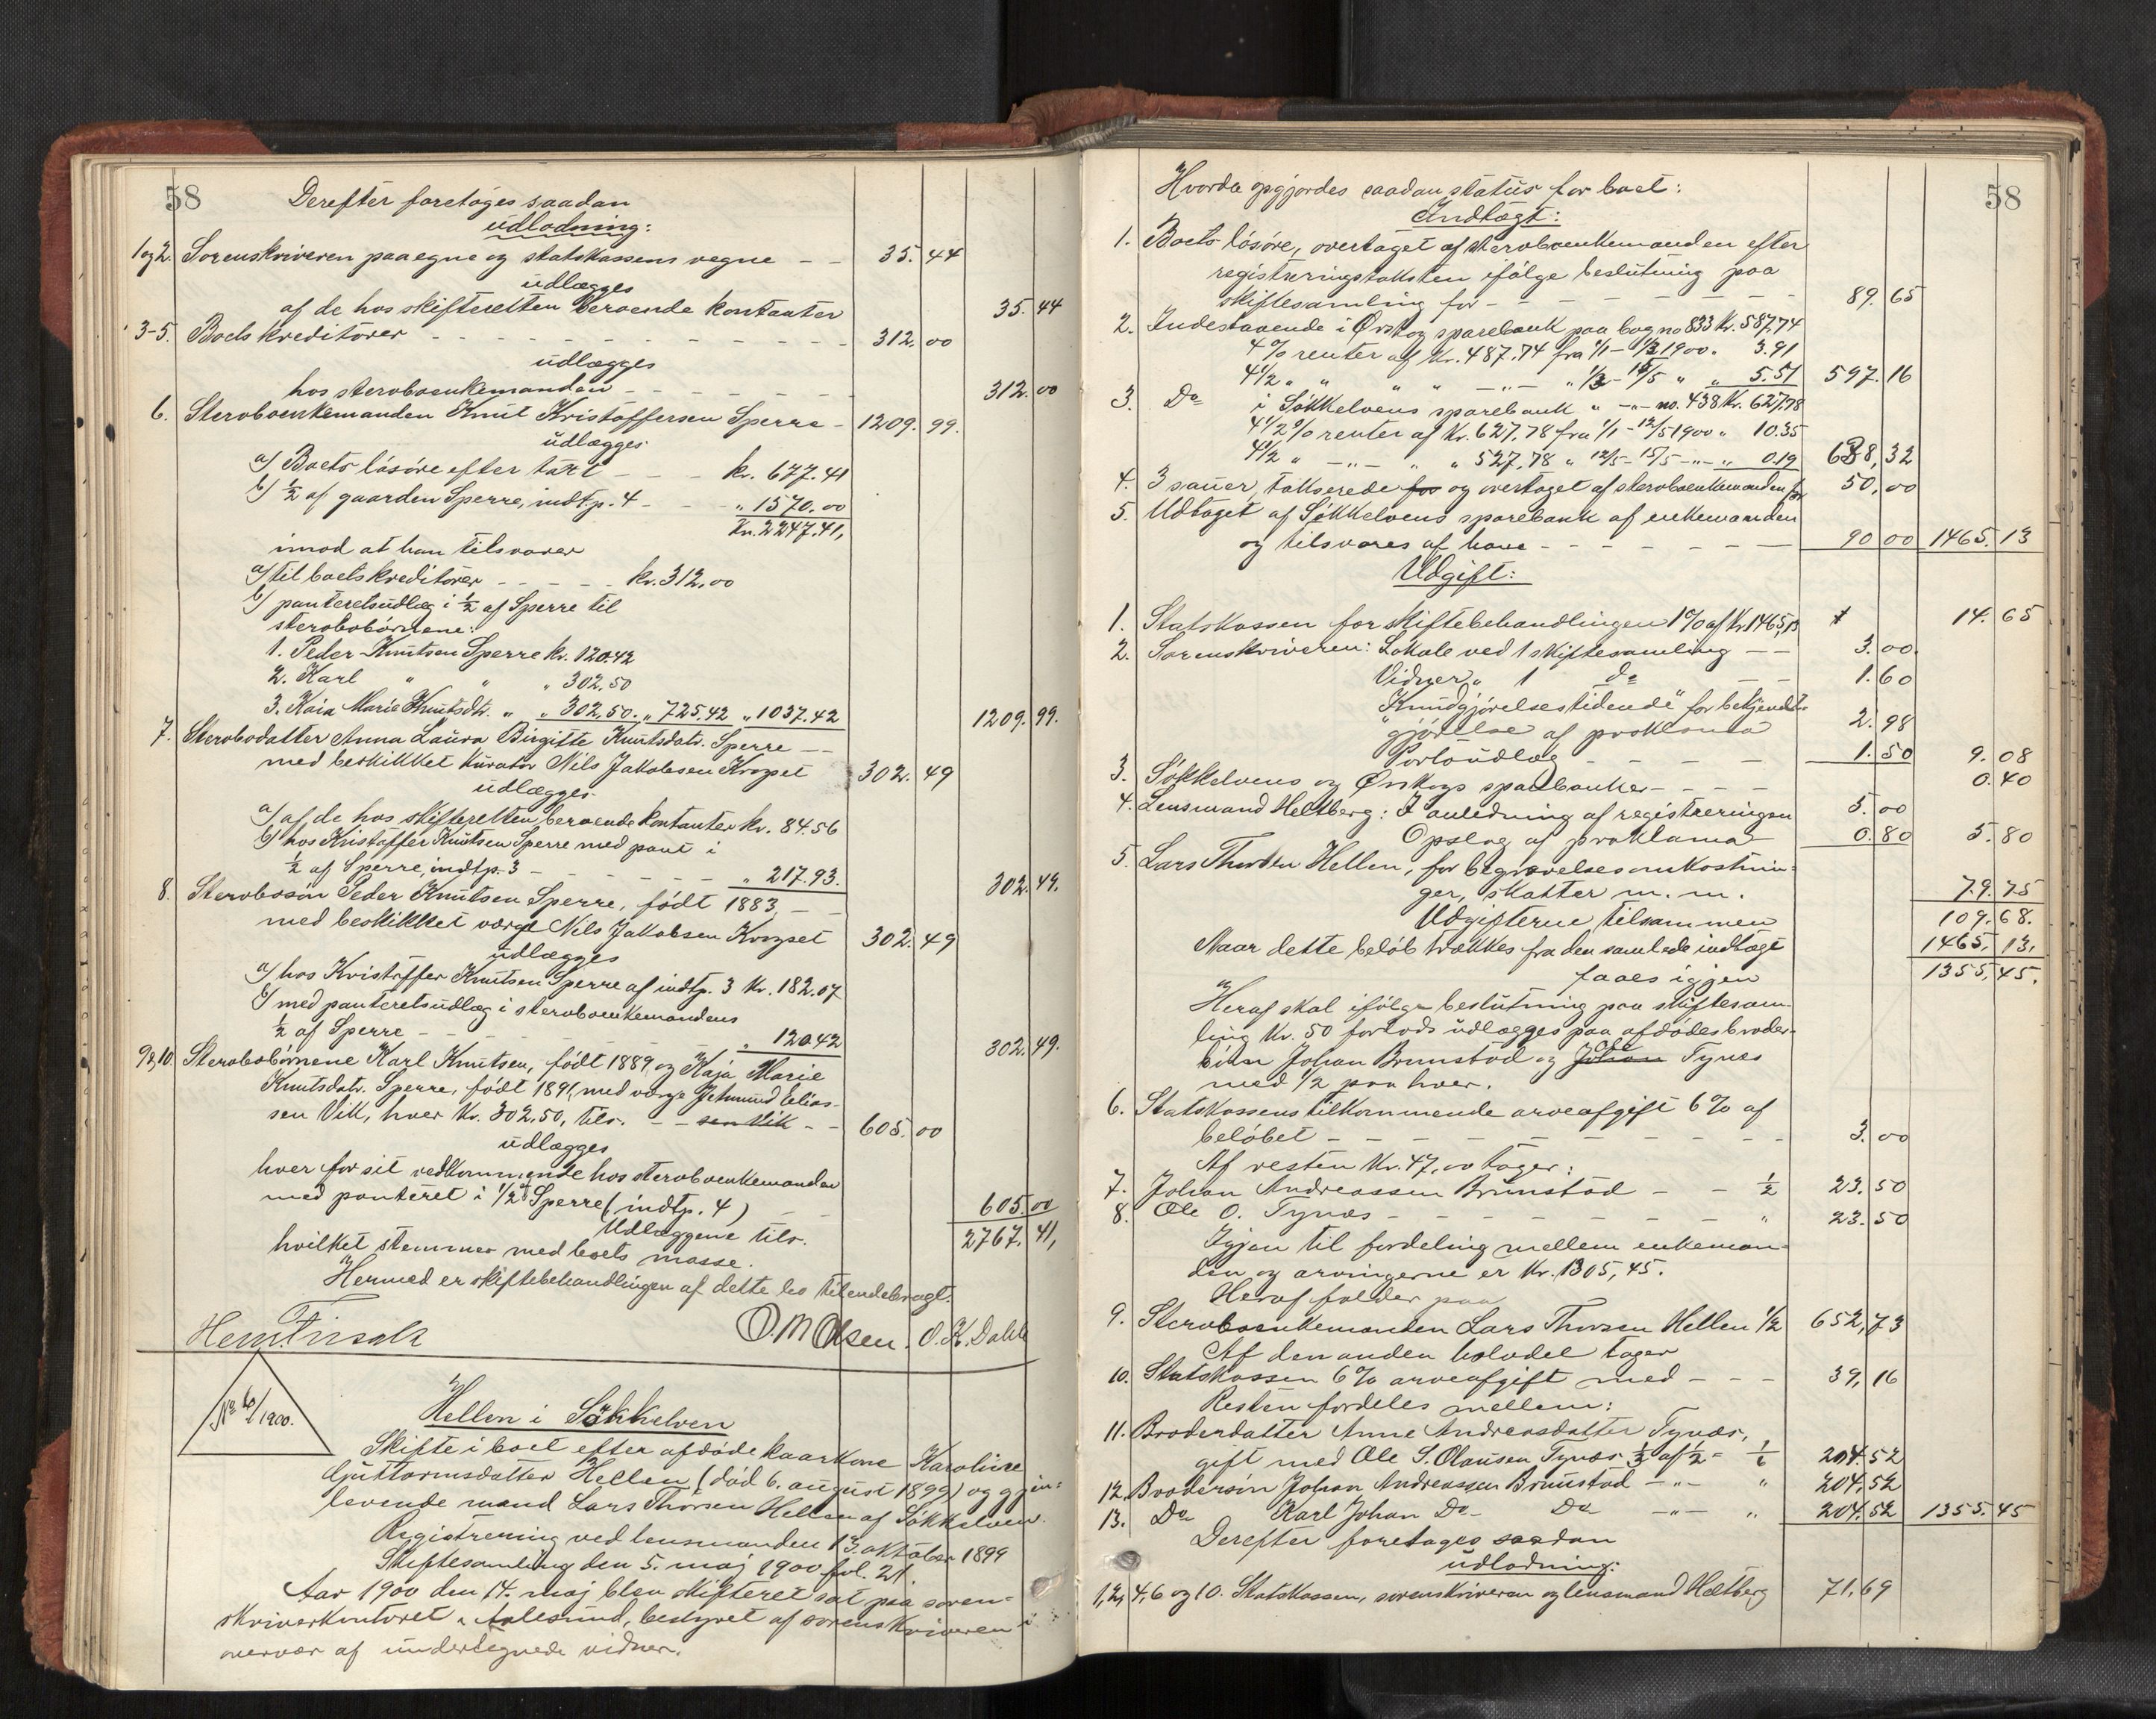 58
Derefter foretoges saadan
udlodning:
1 og 2. Sorenskriveren paa egne og statskassens vegne – – 35.44
udlægges
af de hos skifteretten beroende kontanter 35.44
3-5. Boets kreditorer – – – 312.00
udlægges
hos sterboenkemanden – – – 312.00
6. Sterboenkemanden Knut Kristoffersen Sperre – 1209.99.
udlægges
a) Boets lösöre efter taxt – – – kr. 677.41
b) 1/2 af gaarden Sperre, indtp. 4 – – – „ 1570.00
Kr. 2247.41,
imod at han tilsvarer
a) til boets kreditorer – – – – – kr. 312.00
b) panteretsudlæg i 1/2 af Sperre til
sterbobörnene:
1. Peder Knutsen Sperre kr. 120.42
2. Karl „ „ „ 302.50
3. Kaia Marie Knutsdtr. „ „ 302.50. „ 725.42 „ 1037.42 1209.99.
7. Sterbodatter Anna Laura Birgitte Knutsdatr. Sperre – –
med beskikket kurator Nils Jakobsen Kropset 302.49
udlægges
a) af de hos skifteretten beroende kontanter kr. 84.56
b) hos Kristoffer Knutsen Sperre med pant i
1/2 af Sperre, indtp. 3 – – – – – „ 217.93. 302.49.
8. Sterbosön Peder Knutsen Sperre, födt 1883, – –
med beskikket værge Nils Jakobsen Kropset 302.49
udlægges
a) hos Kristoffer Knutsen Sperre af indtp. 3 Kr. 182.07
b) med panteretsudlæg i sterboenkemandens
1/2 af Sperre – – – – – „ 120.42 302.49.
9 og 10. Sterbobörnene Karl Knutsen, födt 1889, og Kaja Marie
Knutsdatr. Sperre, födt 1891, med værge Jetmund Elias-
sen Vik, hver Kr. 302.50, tils. – – sen Vik – – 605.00
udlægges
hver for sit vedkommende hos sterboenkemanden
med panteret i 1/2 af Sperre (indtp. 4) – – 605.00
Udlæggene tils. 2767.41,
hvilket stemmer med boets masse.
Hermed er skiftebehandlingen af dette bo tilendebragt.
O. M Olsen. O. K. Dahle
No 6/1900.
Hellen i Sökkelven
Skifte i boet efter afdöde kaarkone Karoline
Guttormsdatter Hellen (död 6. august 1899) og gjen-
levende mand Lars Thorsen Hellen af Sökkelven.
Registrering ved lensmanden 13. oktober 1899
Skiftesamling den 5. maj 1900 fol. 21
Aar 1900 den 14. maj blev skifteret sat paa soren-
skriverkontoret i Aalesund, bestyret af sorenskriveren i
overvær af undertegnede vidner.
58
Hvorda opgjordes saadan status for boet:
Indtægt:
1. Boets lösöre, overtaget af sterboenkemanden efter
registreringstaksten ifölge beslutning paa
skiftesamling for – – – – – 89.65
2. Indestaaende i Ørskog sparebank paa bog no 833 Kr. 587.74
4% renter af Kr. 487.74 fra 1/1 – 1/3 1900 „ 3.91
4 1/2 „ „ „ „ –„– „ 1/3 – 15/5 „ „ 5.51 597.16
3. Do i Sökkelvens sparebank „ –„– no. 438 Kr. 627.78
4 1/2 % renter af Kr. 627.78 fra 1/1 – 12/5 1900 „ 10.35
4 1/2 „ –„– „ „ 527.78 „ 12/5 – 15/5 –„– „ 0.19 638.32
4. 3 sauer, takserede for og overtaget af sterboenkemanden for 50.00
5. Udtaget af Sökkelvens sparebank af enkemanden
og tilsvares af ham – – – – – 90.00 1465.13
Udgift:
1. Statskassen for skiftebehandlingen 1% af Kr. 1465,13 14.65
2. Sorenskriveren: Lokale ved 1 skiftesamling – – 3.00.
Vidner „ 1 do – – 1.60
„Kundgjörelsestidende” for bekjendt-
gjörelse af proklama 2.98
Portoudlæg – – – – 1.50 9.08
3. Sökkelvens og Ørskogs sparebanker – – – – 0.40
4. Lensmand Heltberg: I anledning af registreringen 5.00
Opslag af proklama 0.80 5.80
5. Lars Thorsen Hellen, for begravelsesomkostnin-
ger, skatter m. m. 79.75
Udgifterne tilsammen 109.68.
Naar dette belöb trækkes fra den samlede indtægt 1465.13.
faaes igjen 1355.45.
Heraf skal ifölge beslutning paa skiftesam-
ling Kr. 50 forlods udlægges paa afdödes broder-
sön Johan Brunstad og Johan Ole Tynes
med 1/2 paa hver.
6. Statskassens tilkommende arveafgift 6% af
belöbet – – – – – – 3.00
Af resten Kr. 47,00 tager:
7. Johan Andreassen Brunstad – – 1/2 23.50
8. Ole O. Tynæs – – – – – „ 23.50
Igjen til fordeling mellem enkeman-
den og arvingerne er Kr. 1305,45.
Heraf falder paa
9. Sterboenkemanden Lars Thorsen Hellen 1/2 652,73
Af den anden halvdel tager
10. Statskassen 6% arveafgift med – – – 39,16
Resten fordeles mellem:
11. Broderdatter Anne Andreasdatter Tynæs,
gift med Ole S. Olausen Tynæs 1/3 af 1/2 = 1/6 204.52
12. Brodersön Johan Andreassen Brunstad –„– „ 204.52
13. Do Karl Johan Do Do –„– „ 204.52 1355.45
Derefter foretoges saadan
udlodning:
1, 2, 4, 6 og 10. Statskassen, sorenskriveren og lensmand Heltberg 71.69